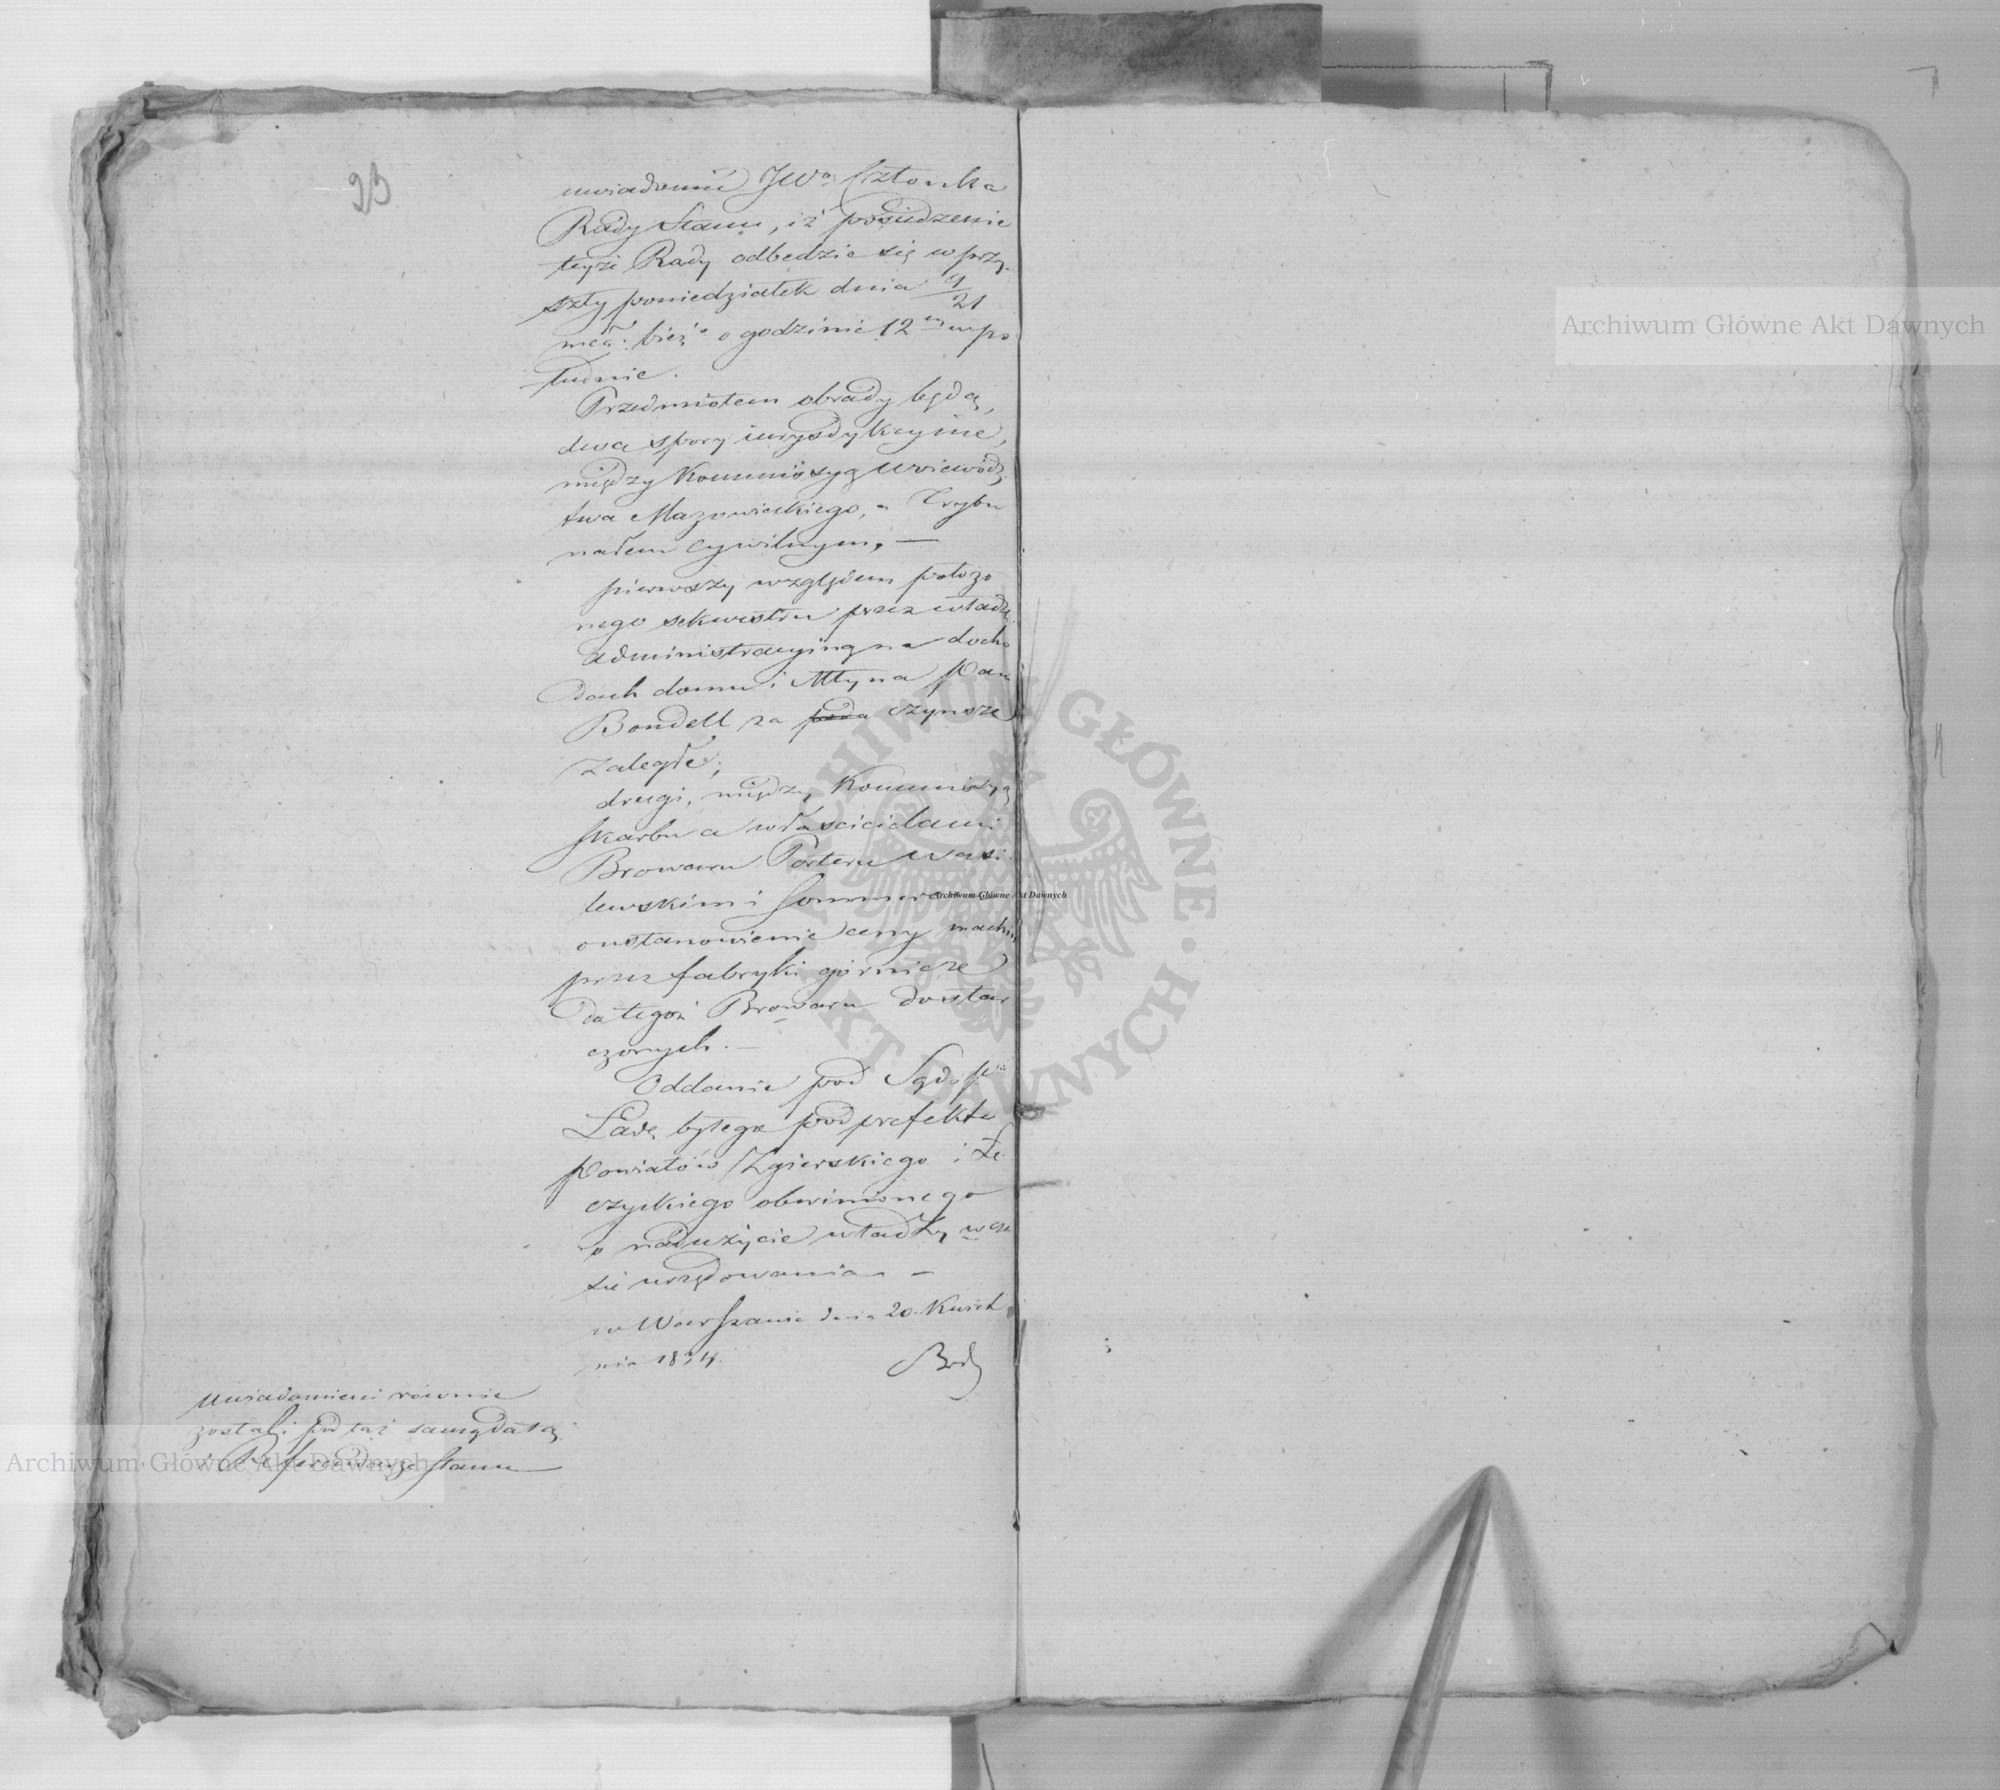 23
uwiadomić JWo Członka
Rady Stanu, iż posiedzenie
teyże Rady odbędzie się w przy-
szły poniedziałek dnia 9/21
mca bieżo o godzinie 12ey w po
łudnie.
Przedmiotem obrady będą,
dwa spory iurysdykcyine,
między Kommissyą Woiewódz
twa Mazowieckiego, a Trybu
nałem Cywilnym, —
pierwszy względem położo
nego sekwestru przez władzę
administracyiną na docho
dach domu i Młyna Pana
Bondell za czynsze
zaległe;
drugi, między Kommissyą
Skarbu a właścicielami
Browaru Porteru Wasi
lewskim i
o ustanowienie ceny machin
przez fabryki górnicze
do tegoż Browaru dostar
czonych. —
Oddanie pod Sąd Pna
Ładę byłego podprefekta
Powiatów Zgierskiego i Łę
czyckiego obwinionego
o nadużycie władzy w cza
sie urzędowania —
w Warszawie dnia 20 Kwiet
nia 1834.
Uwiadomieni równie
zostali pod taż samą datą
i Referendarze Stanu
Archiwum Główne Akt Dawnych
Archiwum Główne Akt Dawnych
Archiwum Główne Akt Dawnych
ARCHIWUM GŁÓWNE AKT DAWNYCH